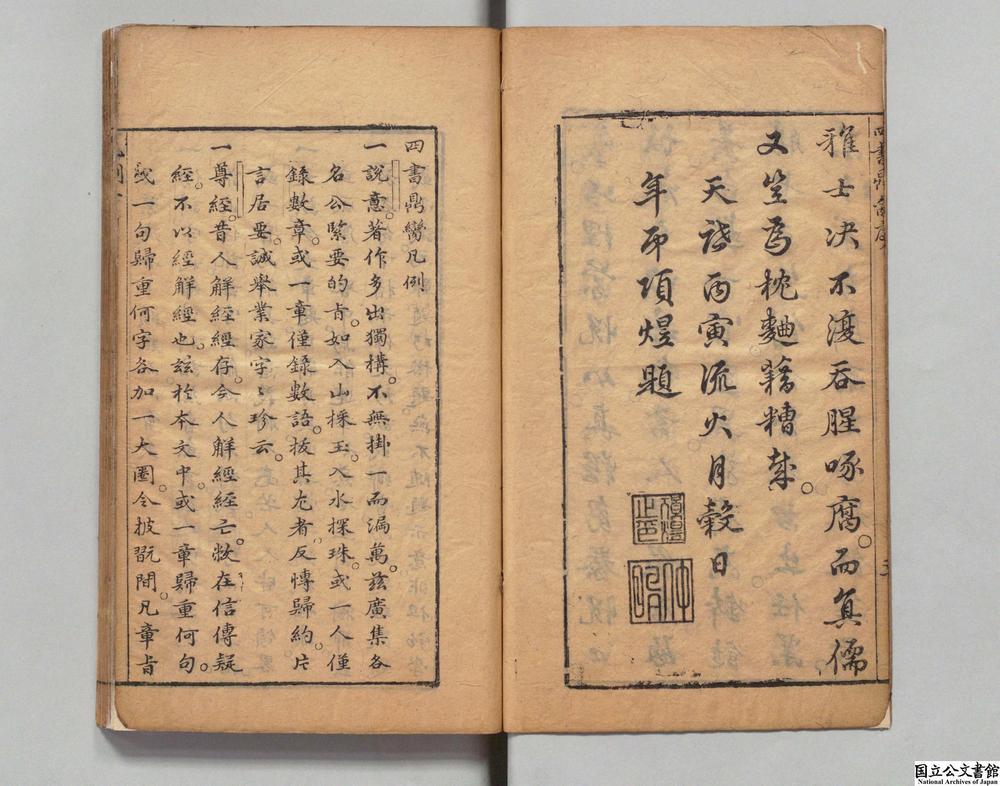 雅士決不復吞腥啄腐而真儒
又豈為枕麯藉糟㦲
天啟丙寅流火月穀日
年弟項煜題
項煜
之印
四書鼎臠凡例
一說意著作多出獨構不無掛一而漏萬茲廣集各
名公緊要的肯如入山採玉入水探珠或一人僅
錄數章或一章僅錄數語拔其尤者反慱歸約片
言居要誠舉業家字〻珍云
一尊經昔人解經經存今人解經經亡獘在信傳疑
經不以經解經也茲於本文中或一章歸重何句
或一句歸重何字各加一大圈令披翫間凡章旨
国立公文書館
National Archives of Japan